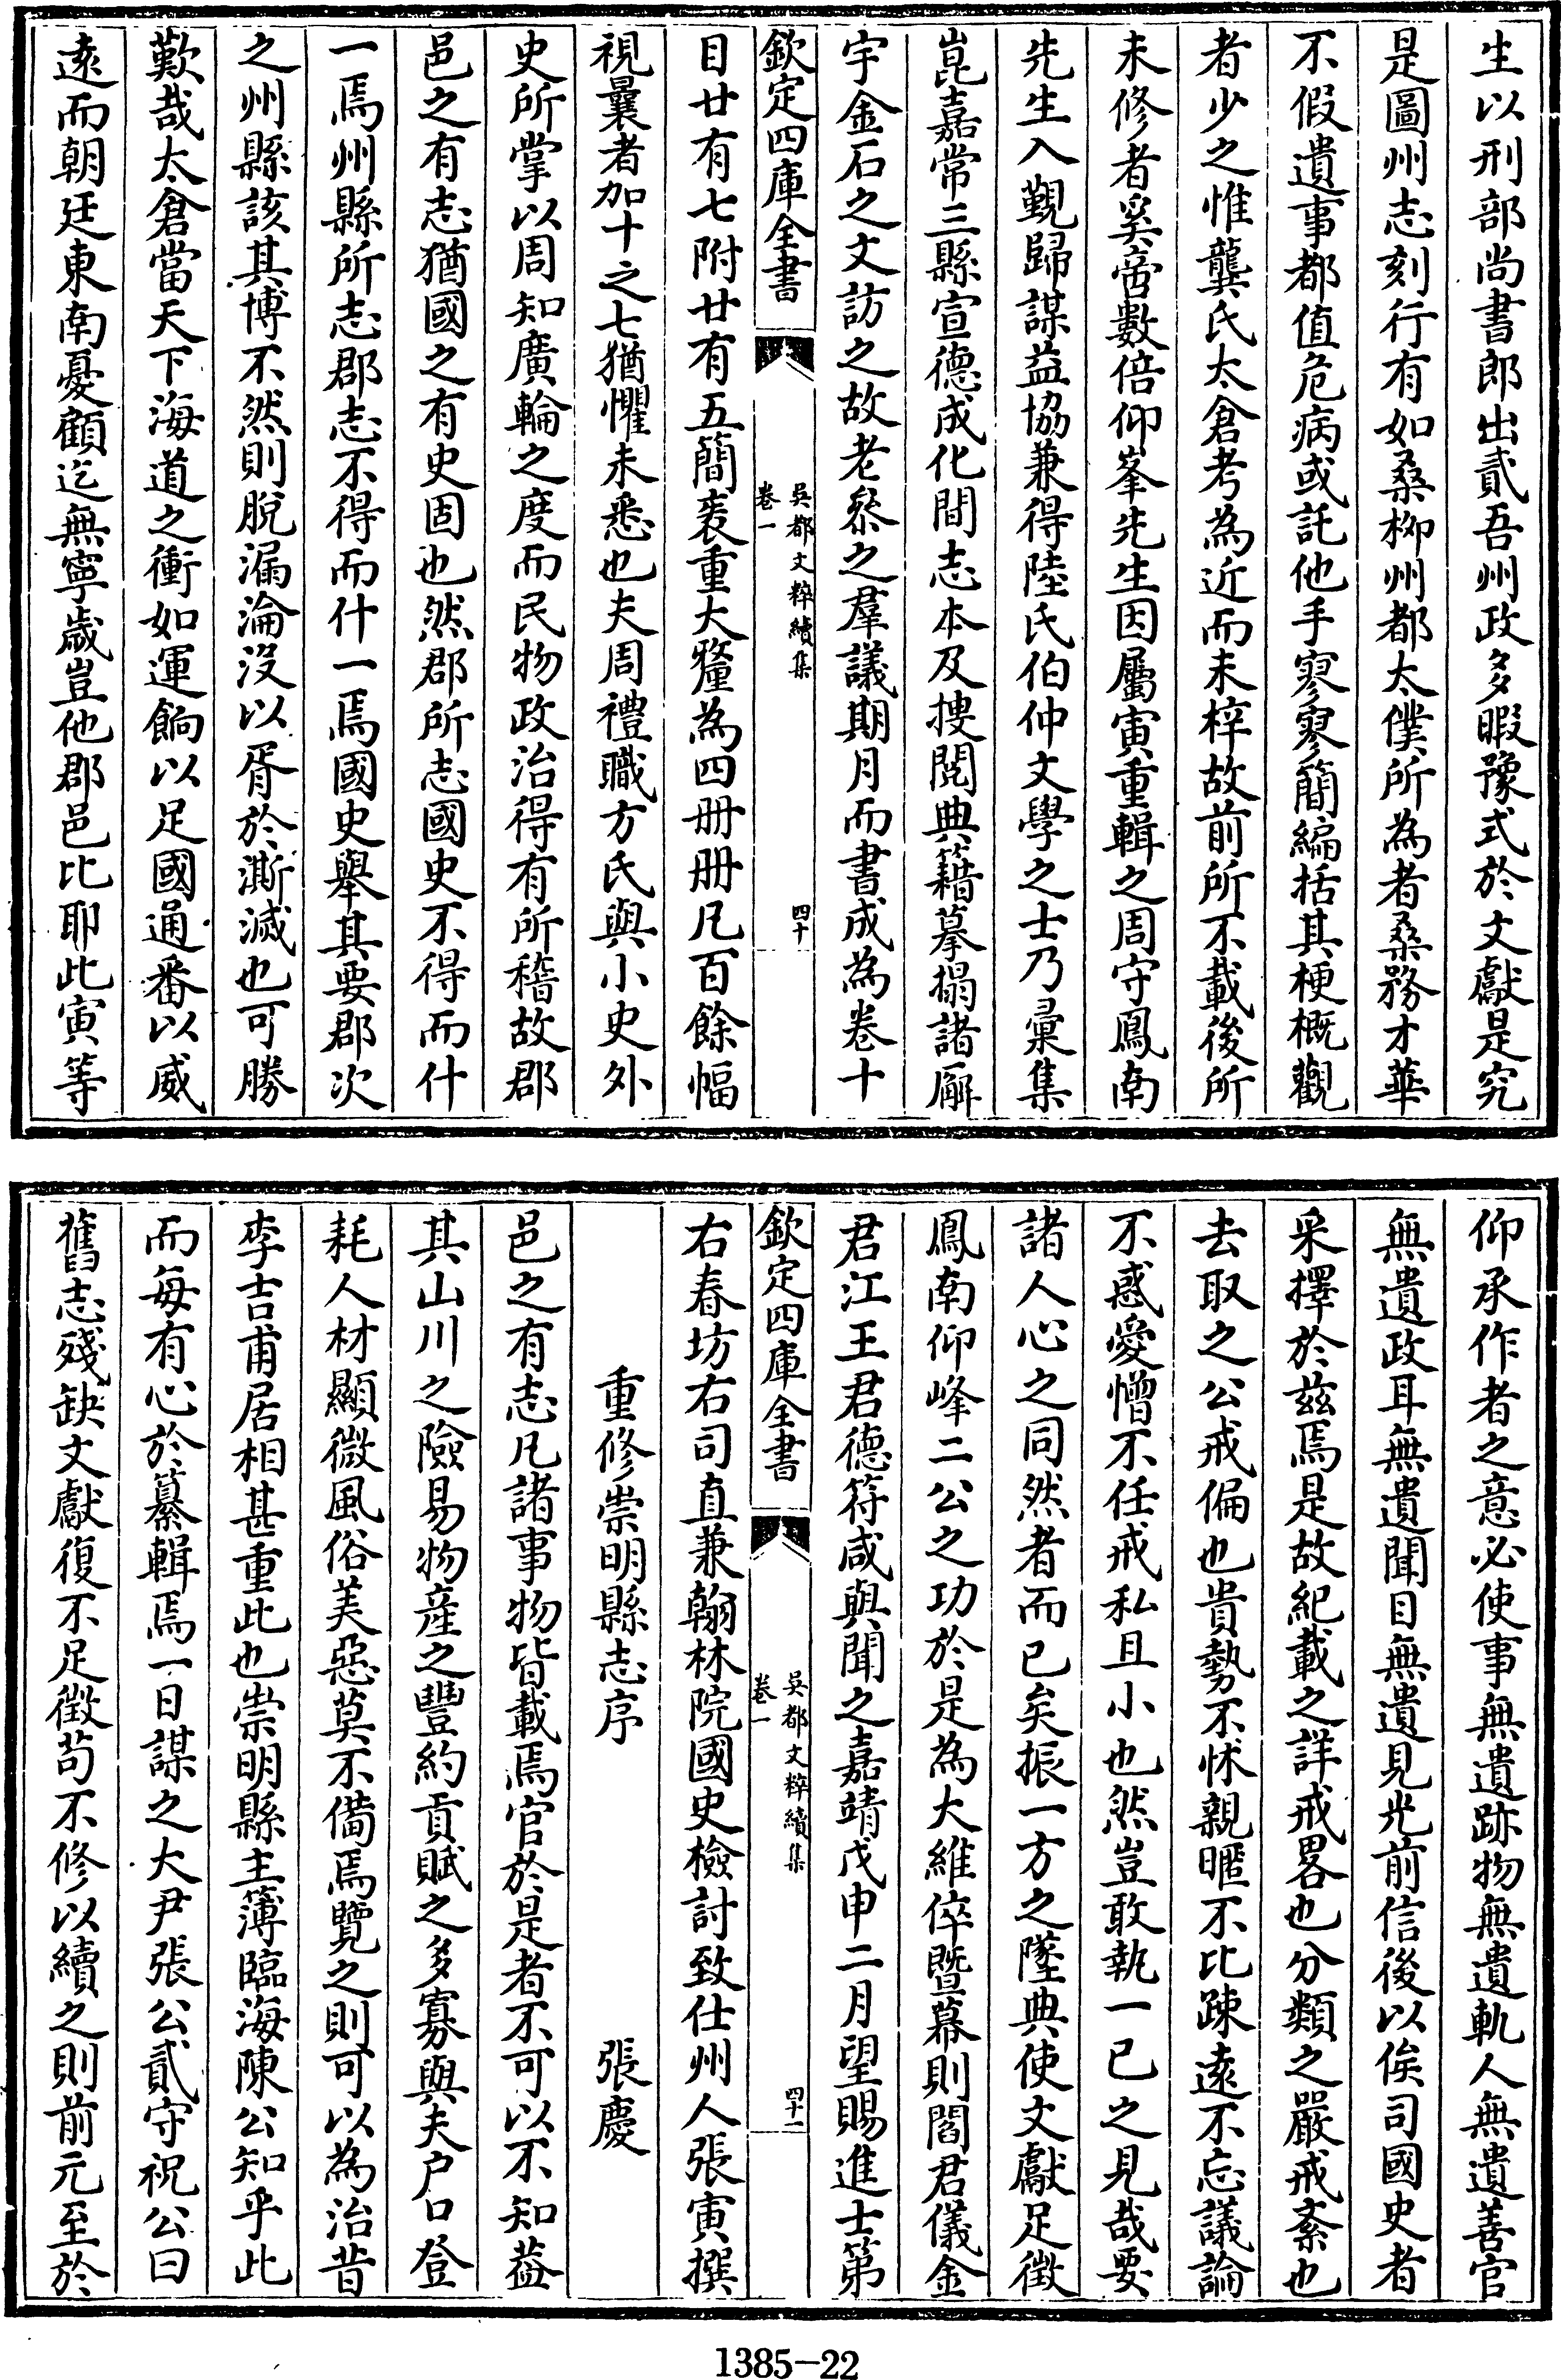 生以刑部尚書郎出貳吾州政多暇豫式於文獻是究
是圖州志刻行有如桑柳州都太僕所為者桑務才華
不假遺事都值危病或託他手寥寥簡編括其梗概觀
者少之惟龔氏太倉考為近而未梓故前所不載後所
未修者奚啻數倍仰峯先生因屬寅重輯之周守鳳南
先生入覲歸謀益協兼得陸氏伯仲文學之士乃彙集
崑嘉常三縣宣德成化間志本及搜閱典籍摹搨諸廨
宇金石之文訪之故老叅之羣議期月而書成為卷十
欽定四庫全書
吳都文粹續集
卷一
四十
目廿有七附廿有五簡袤重大釐為四册册凡百餘幅
視曩者加十之七猶懼未悉也夫周禮職方氏與小史外
史所掌以周知廣輪之度而民物政治得有所稽故郡
邑之有志猶國之有史固也然郡所志國史不得而什
一焉州縣所志郡志不得而什一焉國史舉其要郡次
之州縣該其博不然則脫漏淪沒以胥於澌滅也可勝
歎哉太倉當天下海道之衝如運餉以足國通番以威
遠而朝廷東南憂顧迄無寧歲豈他郡邑比耶此寅等
仰承作者之意必使事無遺跡物無遺軌人無遺善官
無遺政耳無遺聞目無遺見光前信後以俟司國史者
采擇於茲焉是故紀載之詳戒畧也分類之嚴戒紊也
去取之公戒偏也貴勢不怵親暱不比疎遠不忘議論
不惑愛憎不任戒私且小也然豈敢執一已之見哉要
諸人心之同然者而已矣振一方之墜典使文獻足徵
鳳南仰峰二公之功於是為大維倅暨幕則閻君儀金
君江王君德符咸與聞之嘉靖戊申二月望賜進士第
欽定四庫全書
吳都文粹續集
卷一
四十一
右春坊右司直兼翰林院國史檢討致仕州人張寅撰
重修崇明縣志序 張慶
邑之有志凡諸事物皆載焉官於是者不可以不知葢
其山川之險易物產之豐約貢賦之多寡與夫户口登
耗人材顯微風俗美惡莫不備焉覽之則可以為治昔
李吉甫居相甚重此也崇明縣主簿臨海陳公知乎此
而每有心於纂輯焉一日謀之大尹張公貳守祝公曰
舊志殘缺文獻復不足徵苟不修以續之則前元至於
1385-22